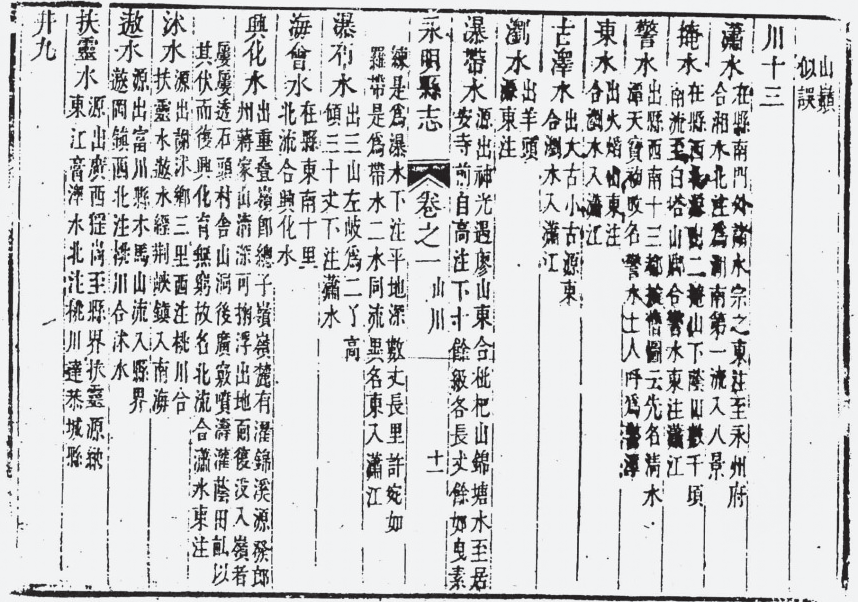 山嶺
似誤
川十三
瀟水
在縣南門外諸水宗之東注至永州府
合湘水北注爲湖南第一流入八景
掩水
在縣西北源出二掩山下蔭田數千頃
南流至白塔山與合警水東注瀟江
警水
出縣西南十三都按舊圖云先名清水
潭天寶初改名警水土人呼爲警潭
東水
出火燒山東注
合瀏水入瀟江
古澤水
出大古小古源東
合瀏水入瀟江
瀏水
出羊頭
源東注
瀑帶水
源出神光遇廖山東合枇杷山錦塘水至居
安寺前自高注下十餘級各長丈餘如曳素
永明縣志
卷之一
山川
十一
練是爲瀑水下注平地深數丈長里許宛如
羅帶是爲帶水二水同流異名東入瀟江
瀑布水
出三山左歧爲二丫高
傾三十丈下注瀟水
海會水
在縣東南十里
北流合興化水
興化水
出重叠嶺卽總子嶺嶺麓有濯錦溪源發郎
州蔣家山清深可掬浮出地面復没入嶺者
屢屢透石頭村舍山洞後廣竅噴濤灌蔭田畝以
其伏而後興化育無窮故名北流合瀟水東注
沐水
源出謝沐鄉三里西注桃川合
扶靈水遨水經荆峽鎮入南海
遨水
源出富川縣木馬山流入縣界
遨岡鎮西北注桃川合沐水
扶靈水
源出廣西從尚至縣界扶靈源納
東江高澤水北注桃川達恭城縣
井九